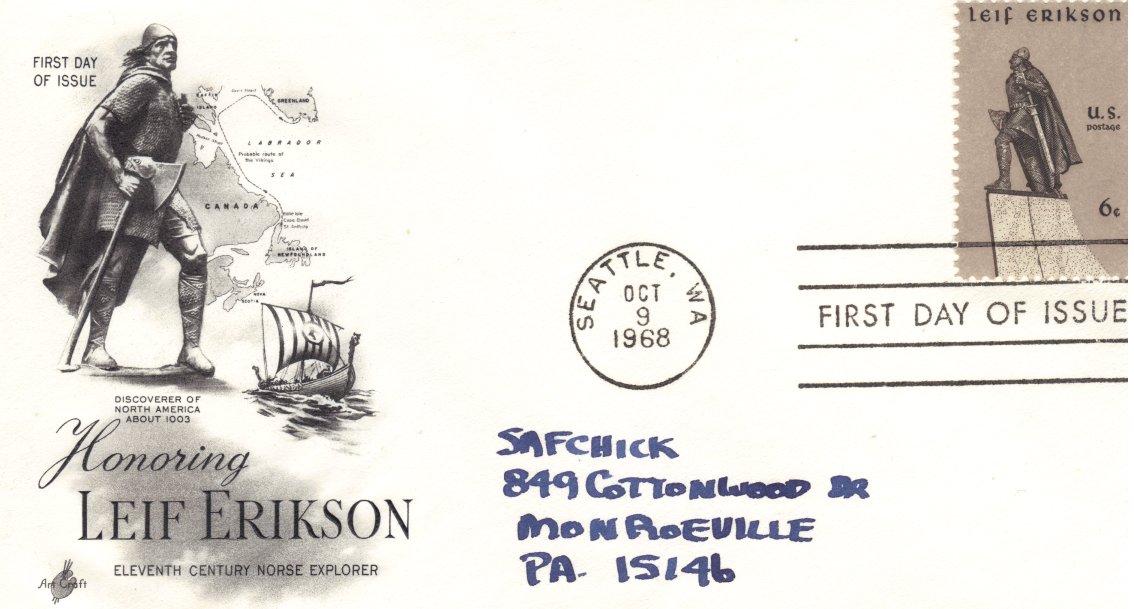 FIRST DAY
OF ISSUE
BAFFIN
ISLAND
GREENLAND
LABRADOR
Probable route of
the Vikings
SEA
CANADA
Belle Isle
St. Anthony
ISLAND OF
NEWFOUNDLAND
NOVA
SCOTIA
DISCOVERER OF
NORTH AMERICA
ABOUT 1003
Honoring
LEIF ERIKSON
ELEVENTH CENTURY NORSE EXPLORER
Art Craft
LEIF ERIKSON
U.S.
postage
6¢
SEATTLE, WA
OCT
9
1968
FIRST DAY OF ISSUE
SAFCHICK
849 COTTONWOOD DR
MONROEVILLE
PA. 15146